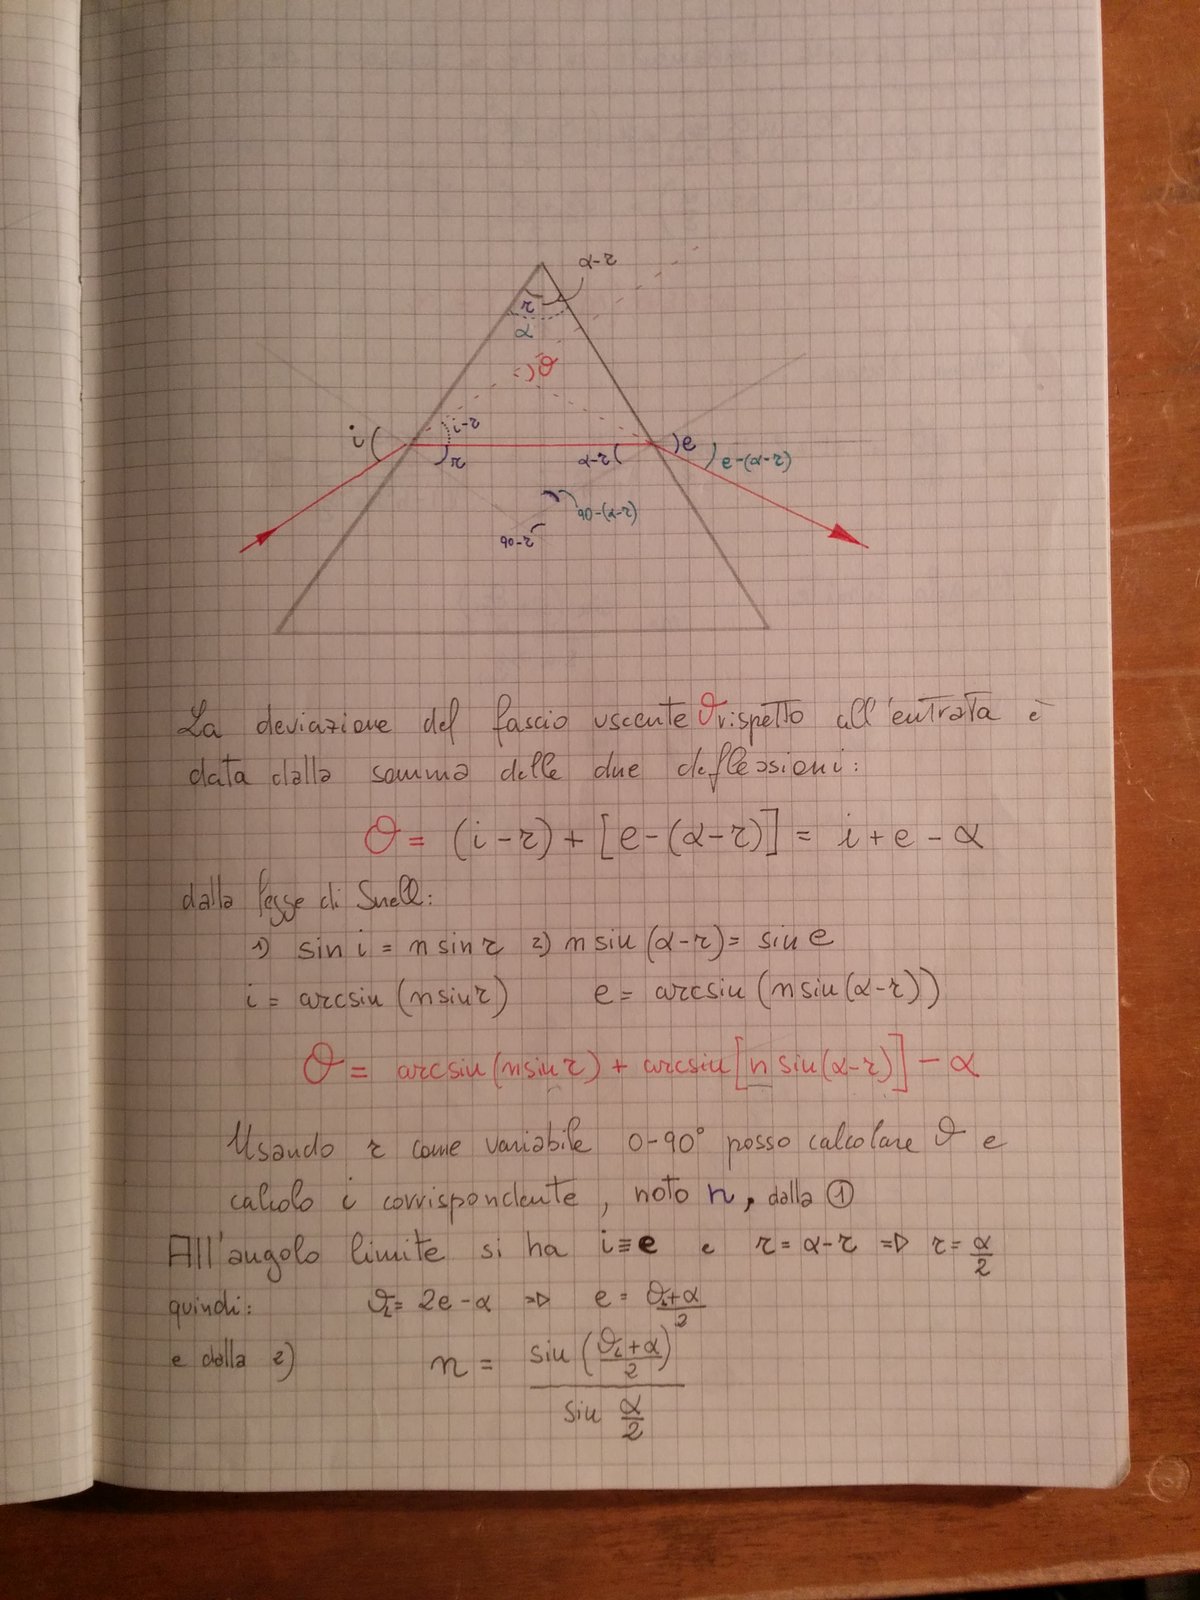 α-r
r
α
ϑ
i
i-r
r
α-r
e
e-(α-r)
90-(α-r)
90-r
La deviazione del fascio uscente ϑ rispetto all'entrata è
data dalla somma delle due deflessioni:
ϑ = (i-r) + [e-(α-r)] = i + e - α
dalla legge di Snell:
1) sin i = n sin r 2) n sin (α-r) = sin e
i = arcsin (n sin r) e = arcsin (n sin (α-r))
ϑ = arcsin (n sin r) + arcsin [n sin (α-r)] - α
Usando r come variabile 0-90° posso calcolare ϑ e
calcolo i corrispondente, noto n, dalla ①
All'angolo limite si ha i≡e e r = α-r => r = α/2
quindi: ϑi = 2e-α => e = (ϑi+α)/2
e dalla 2) n = sin ((ϑi+α)/2) / sin α/2